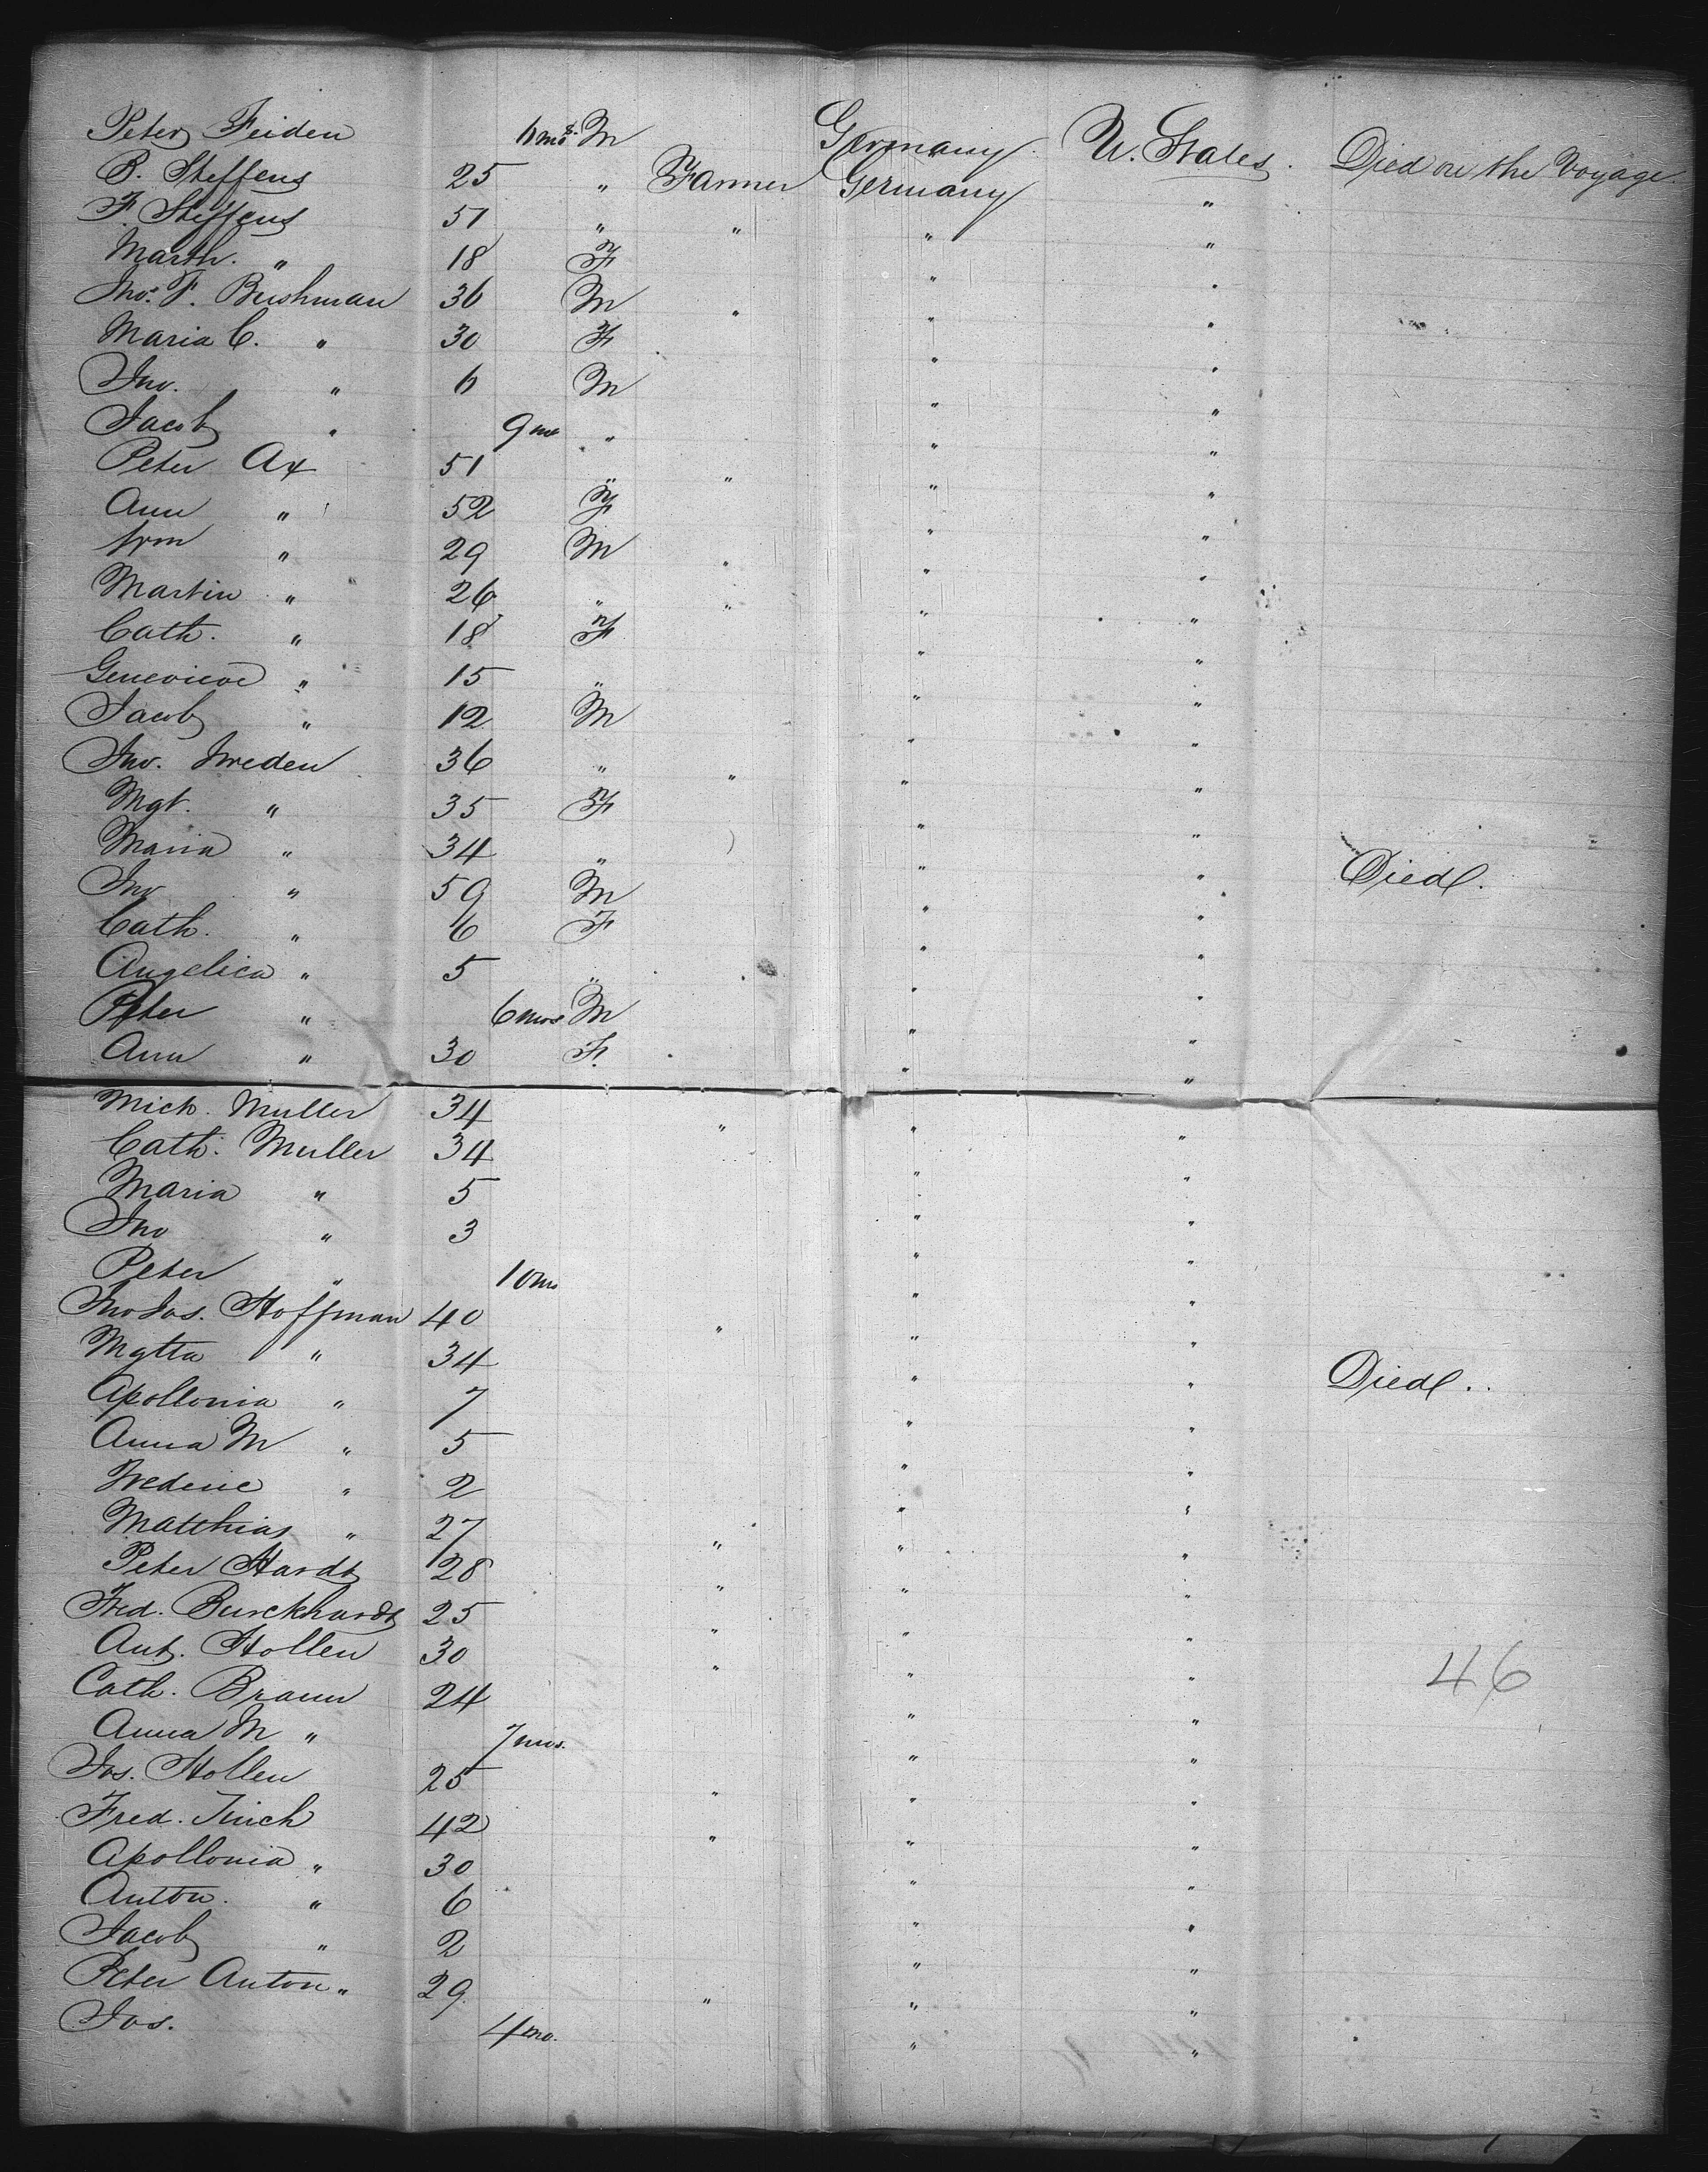 Peter Feiden 6 mos. M Germany U. States. Died on the Voyage.
P. Steffens 25 " Farmer Germany "
F. Steffens 51 " " " "
Marth. " 18 F " "
Jno. F. Bushman 36 M " " "
Maria C. " 30 F " "
Jno. " 6 M " "
Jacob " 9 mo " " "
Peter Ax 51 " " " "
Ann " 52 F " "
Wm " 29 M " " "
Martin " 26 " " " "
Cath. " 18 F " "
Genevieve " 15 " " "
Jacob " 12 M " "
Jno. Sweden 36 " " " "
Mgt. " 35 F " "
Maria " 34 " " " Died.
Jno " 59 M " "
Cath. " 6 F " "
Angelica " 5 " " "
Peter " 6 mos M " "
Ann " 30 F. " "
Mich. Muller 34 " " "
Cath. Muller 34 " "
Maria " 5 " "
Jno " 3 " "
Peter " 10 mo " "
Jno Jos. Hoffman 40 " " "
Mgtta " 34 " " Died..
Apollonia " 7 " "
Anna M " 5 " "
Frederic " 2 " "
Matthias " 27 " " "
Peter Hardt 28 " " "
Fred. Burckhardt 25 " " "
Ant. Hollen 30 " " " 46
Cath. Braun 24 " "
Anna M " 7 mos. " "
Jos. Hollen 25 " " "
Fred. Jinch 42 " " "
Apollonia " 30 " "
Anton. " 6 " "
Jacob " 2 " "
Peter Anton " 29 " " "
Jos. 4 mo. " "